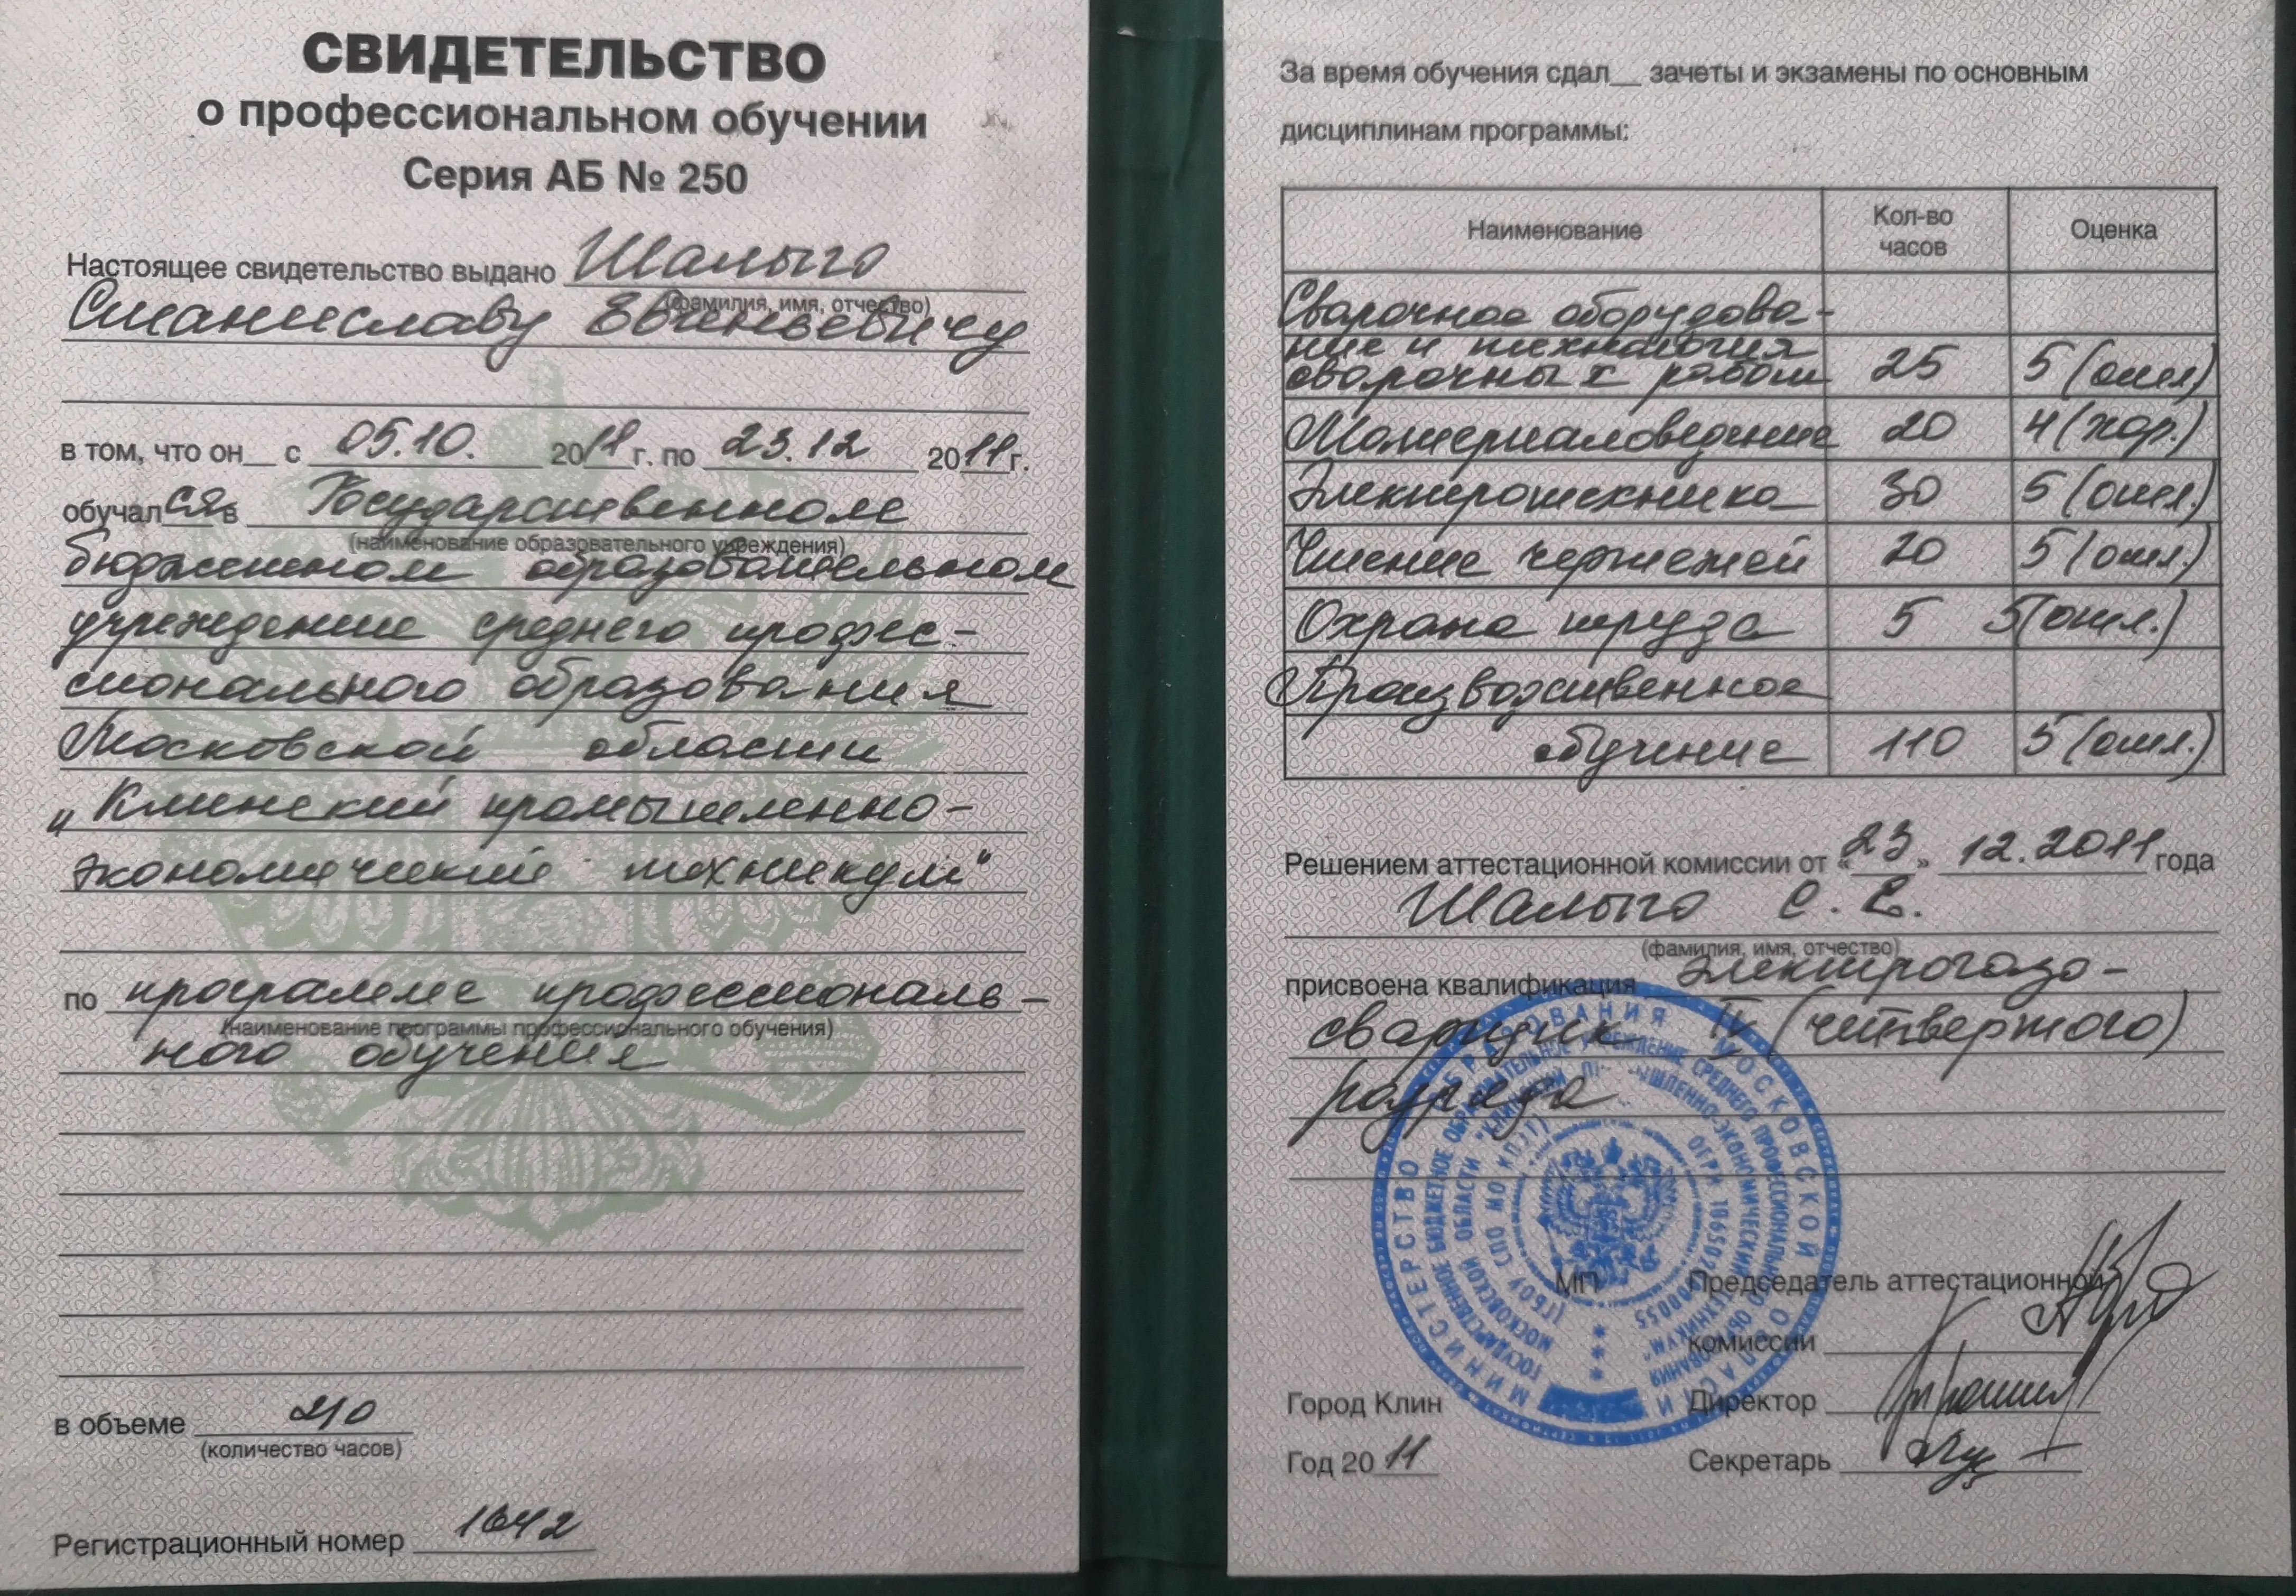 СВИДЕТЕЛЬСТВО
о профессиональном обучении
Серия АБ № 250
Настоящее свидетельство выдано Шалыго
(фамилия, имя, отчество)
Станиславу Евгеньевичу
в том, что он__ с 05.10. 2011 г. по 23.12 2011 г.
обучался в Государственном
(наименование образовательного учреждения)
бюджетном образовательном
учреждение среднего профес-
сионального образования
Московской области
„Клинский промышленно-
экономический техникум"
по программе профессиональ-
(наименование программы профессионального обучения)
ного обучения
в объеме 210
(количество часов)
Регистрационный номер 1642
За время обучения сдал__ зачеты и экзамены по основным
дисциплинам программы:
Наименование Кол-во часов Оценка
Сварочное оборудова-
ние и технология
сварочных работ 25 5 (отл)
Материаловедение 20 4 (хор.)
Электротехника 30 5 (отл.)
Чтение чертежей 20 5 (отл.)
Охрана труда 5 5 (отл.)
Производственное
обучение 110 5 (отл.)
Решением аттестационной комиссии от «23» 12.2011 года
Шалыго С. Е.
(фамилия, имя, отчество)
присвоена квалификация электрогазо-
сварщик IV (четвертого)
разряда
МИНИСТЕРСТВО ОБРАЗОВАНИЯ МОСКОВСКОЙ ОБЛАСТИ
ГОСУДАРСТВЕННОЕ БЮДЖЕТНОЕ ОБРАЗОВАТЕЛЬНОЕ УЧРЕЖДЕНИЕ СРЕДНЕГО ПРОФЕССИОНАЛЬНОГО ОБРАЗОВАНИЯ
МОСКОВСКОЙ ОБЛАСТИ ПРОМЫШЛЕННО-ЭКОНОМИЧЕСКИЙ ТЕХНИКУМ"
(ГБОУ СПО МО КПЭТ)
МП Председатель аттестационной
комиссии
Город Клин Директор
Год 2011 Секретарь